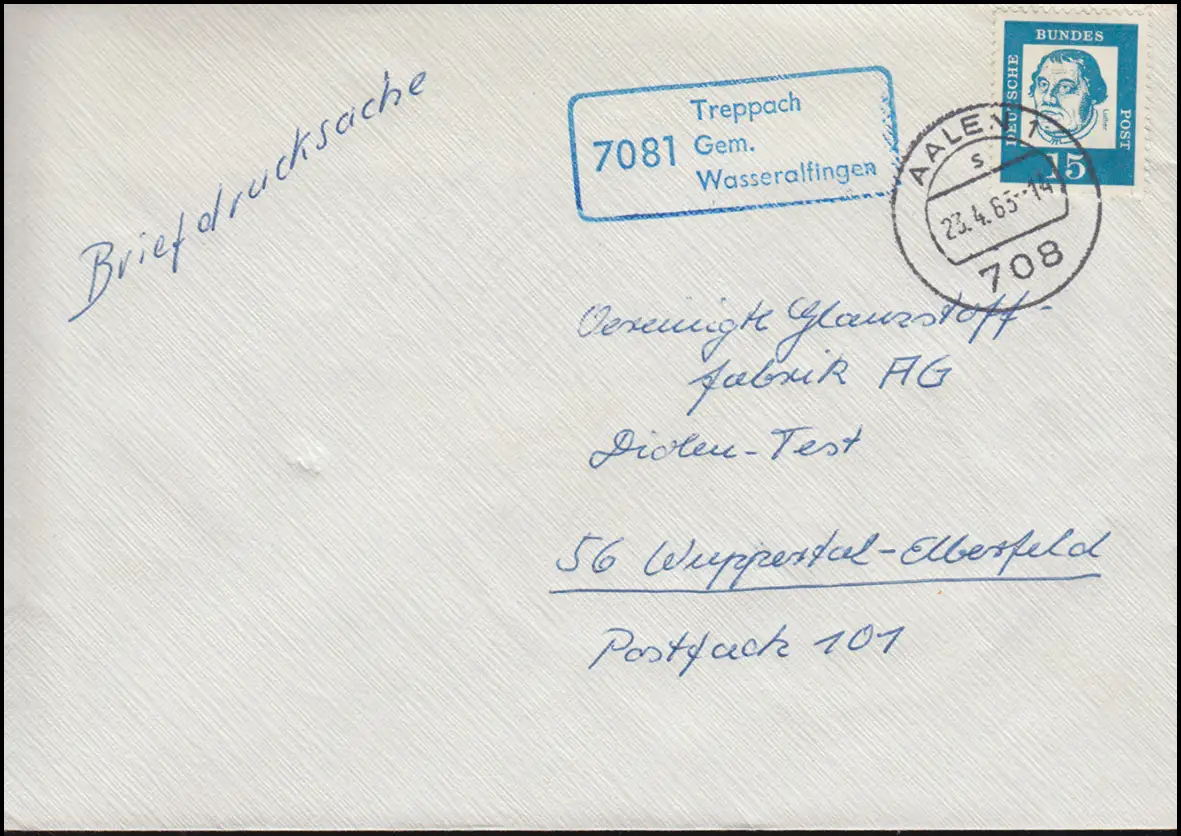 Briefdrucksache
7081
Treppach
Gem.
Wasseralfingen
BUNDES
DEUTSCHE
POST
Luther
15
AALEN 1
s
23.4.63-14
708
Vereinigte Glanzstoff-
fabrik AG
Diolen-Test
56 Wuppertal-Elberfeld
Postfach 101